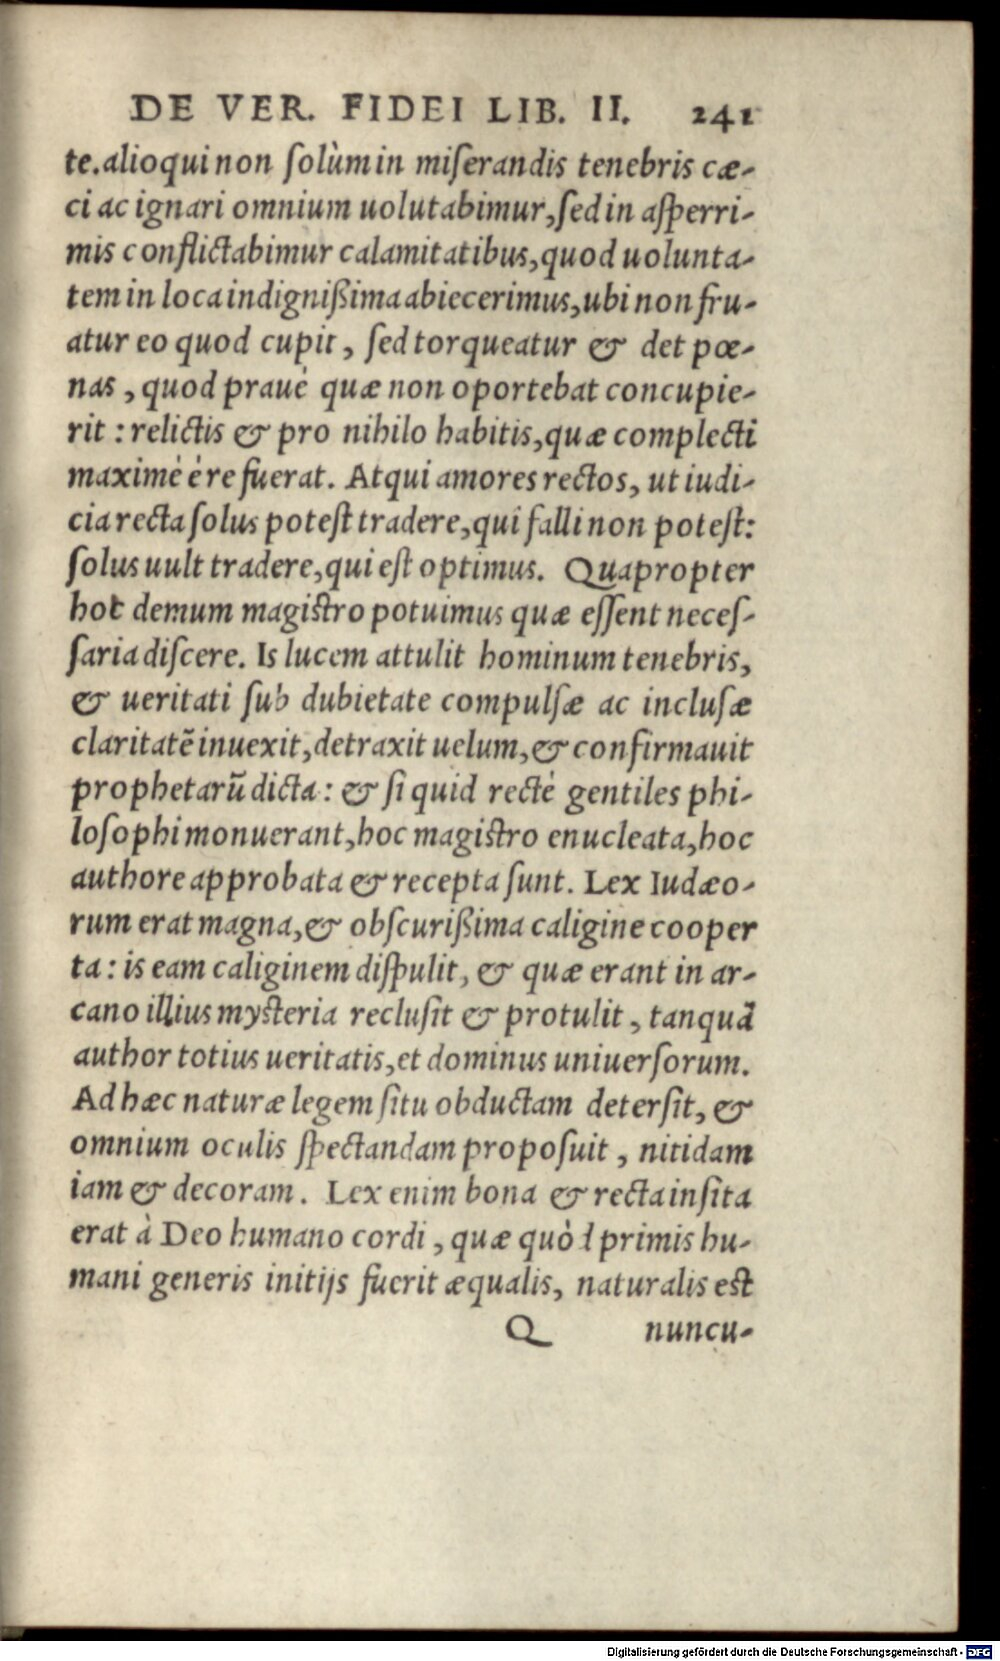 DE VER. FIDEI LIB. II. 241
te. alioqui non ſolùm in miſerandis tenebris cæ-
ci ac ignari omnium uolutabimur, ſed in aſperri-
mis conflictabimur calamitatibus, quod uolunta-
tem in loca indignißima abiecerimus, ubi non fru-
atur eo quod cupit, ſed torqueatur & det pœ-
nas, quod prauè quæ non oportebat concupie-
rit: relictis & pro nihilo habitis, quæ complecti
maximè è re fuerat. Atqui amores rectos, ut iudi-
cia recta ſolus poteſt tradere, qui falli non poteſt:
ſolus uult tradere, qui eſt optimus. Quapropter
hoc demum magiſtro potuimus quæ eſſent neceſ-
ſaria diſcere. Is lucem attulit hominum tenebris,
& ueritati ſub dubietate compulſæ ac incluſæ
claritatē inuexit, detraxit uelum, & confirmauit
prophetarū dicta: & ſi quid rectè gentiles phi-
loſophi monuerant, hoc magiſtro enucleata, hoc
authore approbata & recepta ſunt. Lex Iudæo-
rum erat magna, & obſcurißima caligine cooper
ta: is eam caliginem diſpulit, & quæ erant in ar-
cano illius myſteria recluſit & protulit, tanquā
author totius ueritatis, et dominus uniuerſorum.
Ad hæc naturæ legem ſitu obductam deterſit, &
omnium oculis ſpectandam propoſuit, nitidam
iam & decoram. Lex enim bona & recta inſita
erat à Deo humano cordi, quæ quòd primis hu-
mani generis initijs fuerit æqualis, naturalis eſt
Q nuncu-
Digitalisierung gefördert durch die Deutsche Forschungsgemeinschaft - DFG